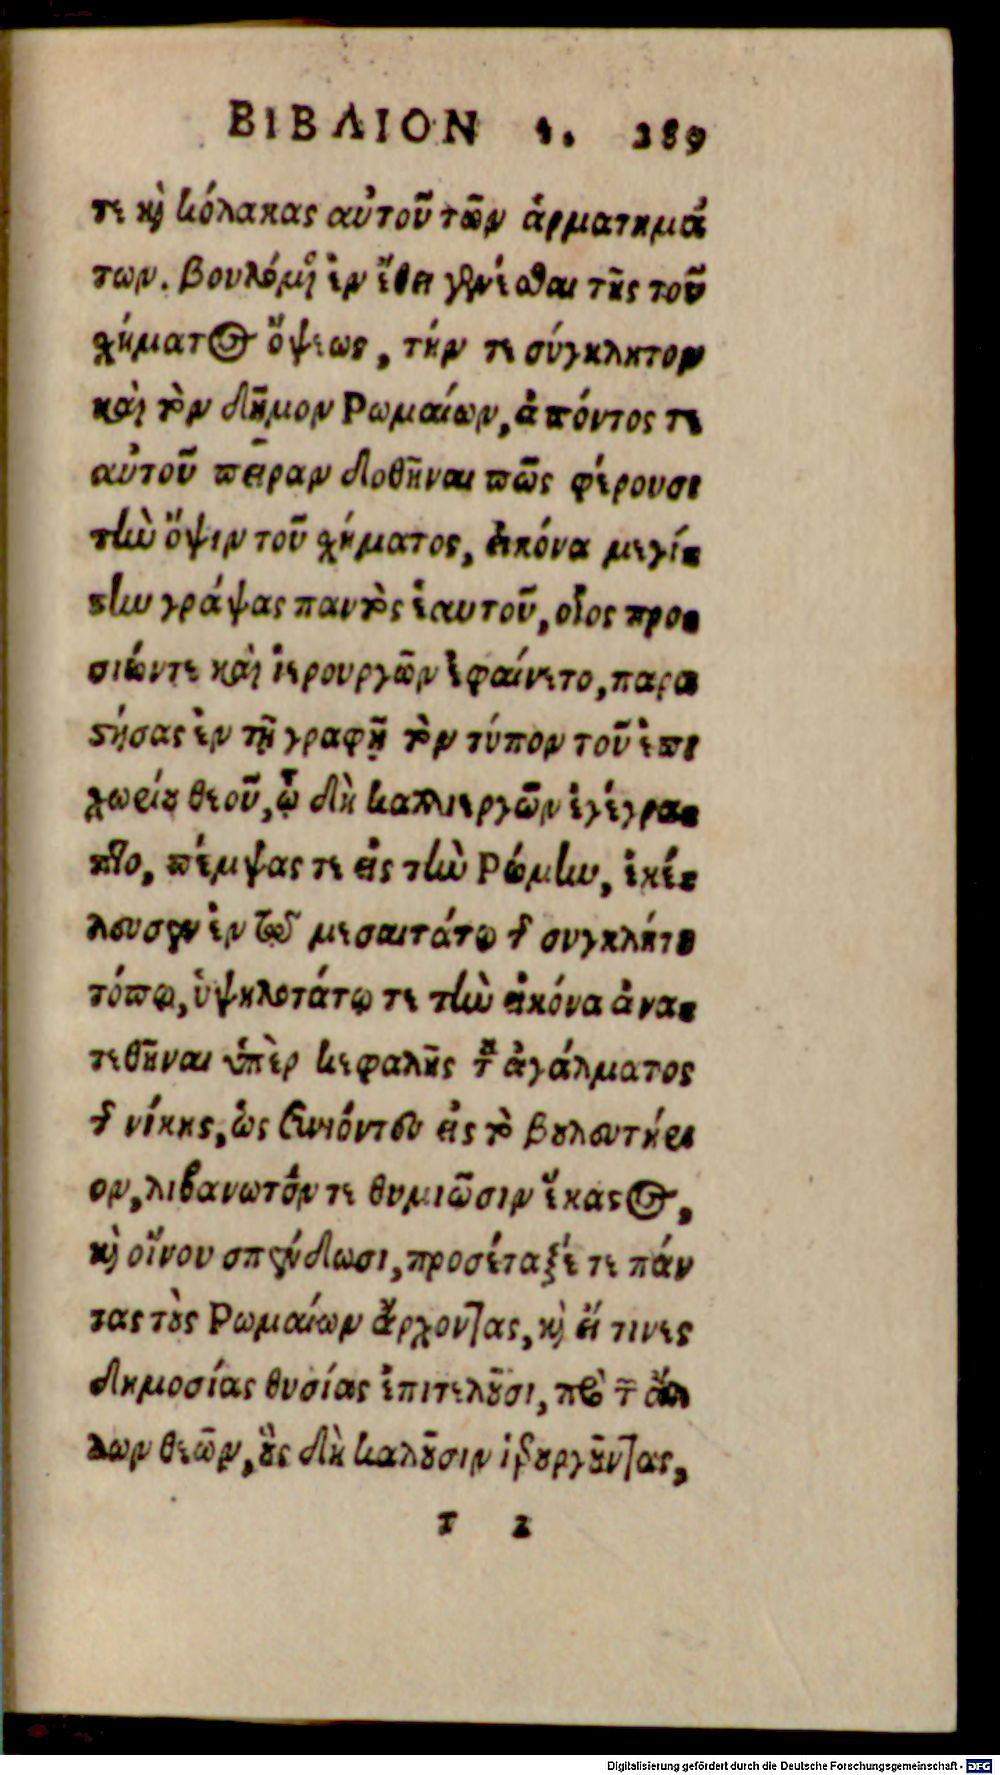 ΒΙΒΛΙΟΝ ε. 289
τε κὶ κόλακας αὐτοῦ τῶν ἁρματημά
των. βουλόμενος ἐν ἔθει γενέσθαι τῆς τοῦ
χήματος ὄψεως, τήν τε σύγκλητον
καὶ τὸν δῆμον Ρωμαίων, ἀπόντος τε
αὐτοῦ πεῖραν δοθῆναι πῶς φέρουσι
τὴν ὄψιν τοῦ χήματος, εἰκόνα μεγί-
στην γράψας παντὸς ἑαυτοῦ, οἷος προ-
σιών τε καὶ ἱερουργῶν ἐφαίνετο, παρα
στήσας ἐν τῇ γραφῇ τὸν τύπον τοῦ ἐπι
χωρίου θεοῦ, ᾧ δὴ καλλιεργῶν ἐγέγρα-
πτο, πέμψας τε εἰς τὴν Ρώμην, ἐκέ-
λευσεν ἐν τῷ μεσαιτάτῳ τῆς συγκλήτου
τόπῳ, ὑψηλοτάτῳ τε τὴν εἰκόνα ἀνα-
τεθῆναι ὑπὲρ κεφαλῆς τοῦ ἀγάλματος
τῆς νίκης, ὡς συνιόντων εἰς τὸ βουλευτήρι
ον, λιβανωτόν τε θυμιῶσιν ἕκαστος,
κὶ οἴνου σπένδωσι, προσέταξέ τε πάν
τας τοὺς Ρωμαίων ἄρχοντας, κὶ εἴ τινες
δημοσίας θυσίας ἐπιτελοῦσι, πρὸ τῶν ἄλ
λων θεῶν, οὓς δὴ καλοῦσιν ἱερουργοῦντας,
τ 2
Digitalisierung gefördert durch die Deutsche Forschungsgemeinschaft - DFG